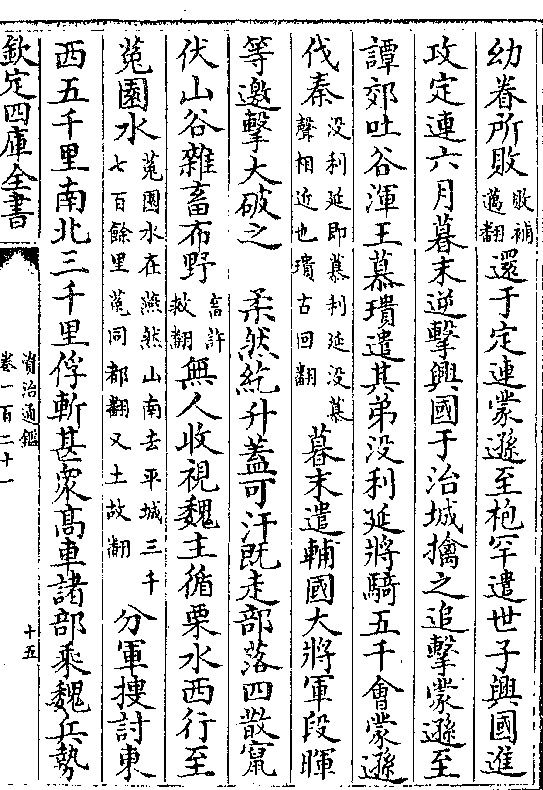 幼眷所敗敗補邁翻還于定連蒙遜至枹罕遣世子興國進
攻定連六月暮末逆擊興國于治城擒之追擊蒙遜至
譚郊吐谷渾王慕璝遣其弟没利延將騎五千會蒙遜
伐秦没利延即慕利延没慕聲相近也璝古回翻暮末遣輔國大將軍段暉
等邀擊大破之　柔然紇升蓋可汗既走部落四散竄
伏山谷雜畜布野畜許救翻無人收視魏主循栗水西行至
菟園水菟園水在燕然山南去平城三千七百餘里菟同都翻又土故翻分軍搜討東
西五千里南北三千里俘斬甚衆高車諸部乘魏兵勢
欽定四庫全書
資治通鑑
卷一百二十一
十五